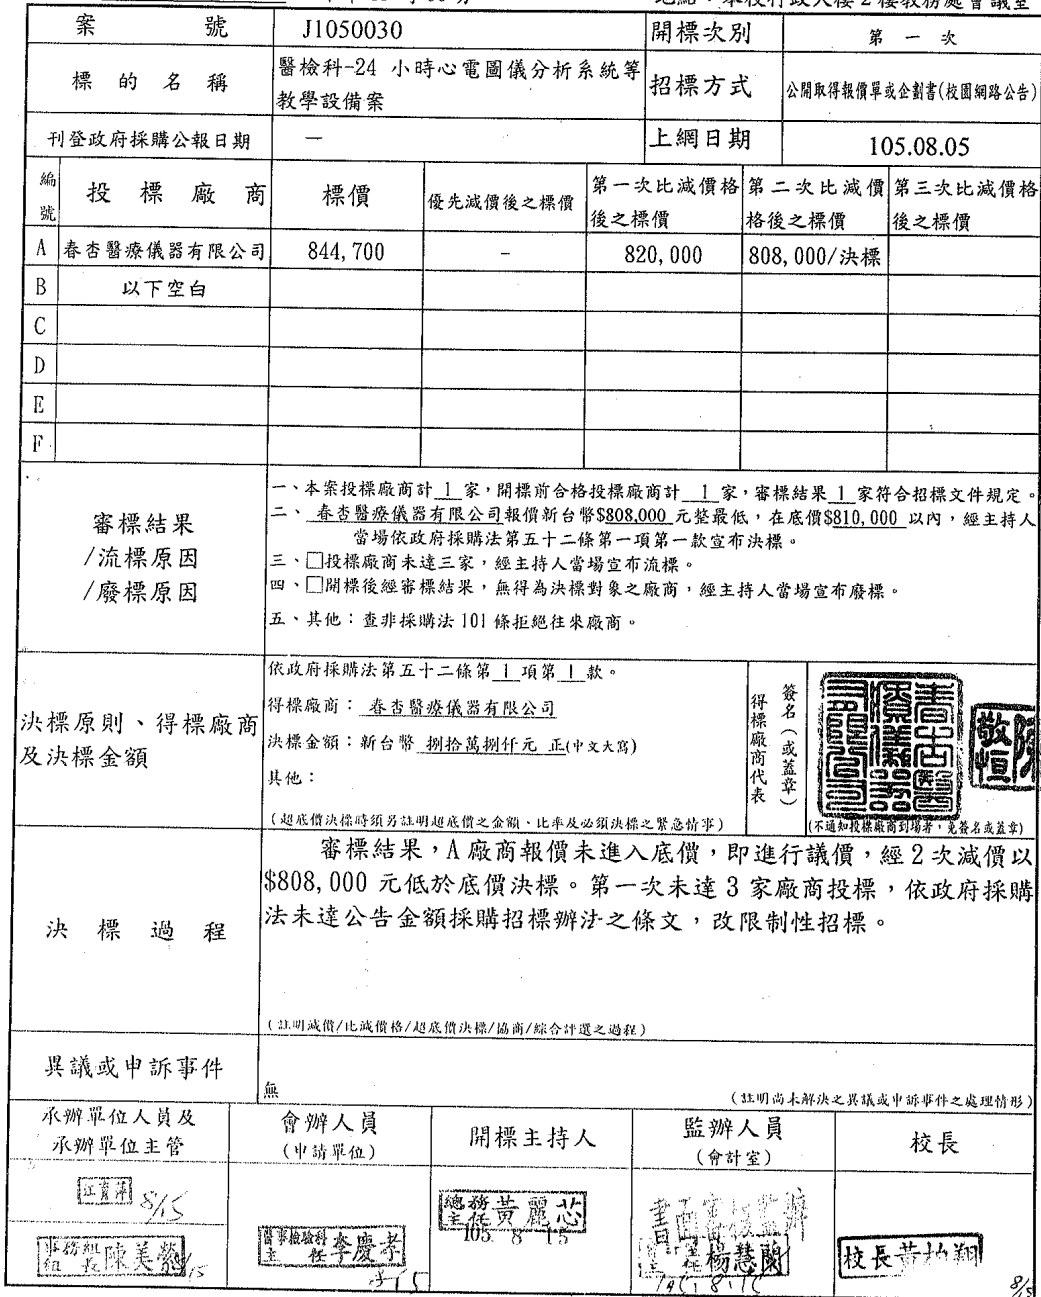 地點：本校行政大樓2樓教務處會議室
案 號 J1050030 開標次別 第 一 次
標 的 名 稱 醫檢科-24 小時心電圖儀分析系統等教學設備案 招標方式 公開取得報價單或企劃書(校園網路公告)
刊登政府採購公報日期 — 上網日期 105.08.05
編號 投 標 廠 商 標價 優先減價後之標價 第一次比減價格後之標價 第二次比減價格後之標價 第三次比減價格後之標價
A 春杏醫療儀器有限公司 844,700 - 820,000 808,000/決標
B 以下空白
C
D
E
F
審標結果
/流標原因
/廢標原因
一、本案投標廠商計 1 家，開標前合格投標廠商計 1 家，審標結果 1 家符合招標文件規定。
二、 春杏醫療儀器有限公司報價新台幣$808,000 元整最低，在底價$810,000 以內，經主持人
當場依政府採購法第五十二條第一項第一款宣布決標。
三、□投標廠商未達三家，經主持人當場宣布流標。
四、□開標後經審標結果，無得為決標對象之廠商，經主持人當場宣布廢標。
五、其他：查非採購法 101 條拒絕往來廠商。
決標原則、得標廠商
及決標金額
依政府採購法第五十二條第 1 項第 1 款。
得標廠商： 春杏醫療儀器有限公司
決標金額：新台幣 捌拾萬捌仟元 正(中文大寫)
其他：
(超底價決標時須另註明超底價之金額、比率及必須決標之緊急情事)
得標廠商代表
簽名(或蓋章)
春杏醫療儀器有限公司
陳敬恒
(不通知投標廠商到場者，免簽名或蓋章)
決 標 過 程
審標結果，A 廠商報價未進入底價，即進行議價，經 2 次減價以
$808,000 元低於底價決標。第一次未達 3 家廠商投標，依政府採購
法未達公告金額採購招標辦法之條文，改限制性招標。
(註明減價/比減價格/超底價決標/協商/綜合評選之過程)
異議或申訴事件
無
(註明尚未解決之異議或申訴事件之處理情形)
承辦單位人員及
承辦單位主管
會辦人員
(申請單位)
開標主持人
監辦人員
(會計室)
校長
8/15
事務組組長 陳美
8/15
醫事檢驗科主任 李慶孝
8/15
總務主任 黃麗芯
105 8 15
書面審核監辦
主任 楊慧蘭
校長 黃柏翔
8/15